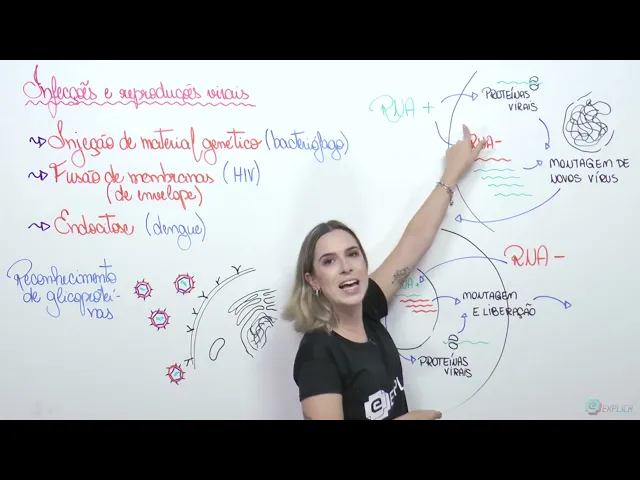 Infecções e reproduções virais
Injeção de material genético (bacteriófago)
Fusão de membranas (HIV)
(de envelope)
Endocitose (dengue)
Reconhecimento
de glicoproteí-
nas
RNA +
PROTEÍNAS
VIRAIS
RNA-
MONTAGEM DE
NOVOS VÍRUS
RNA -
MONTAGEM
E LIBERAÇÃO
PROTEÍNAS
VIRAIS
EXPLICA